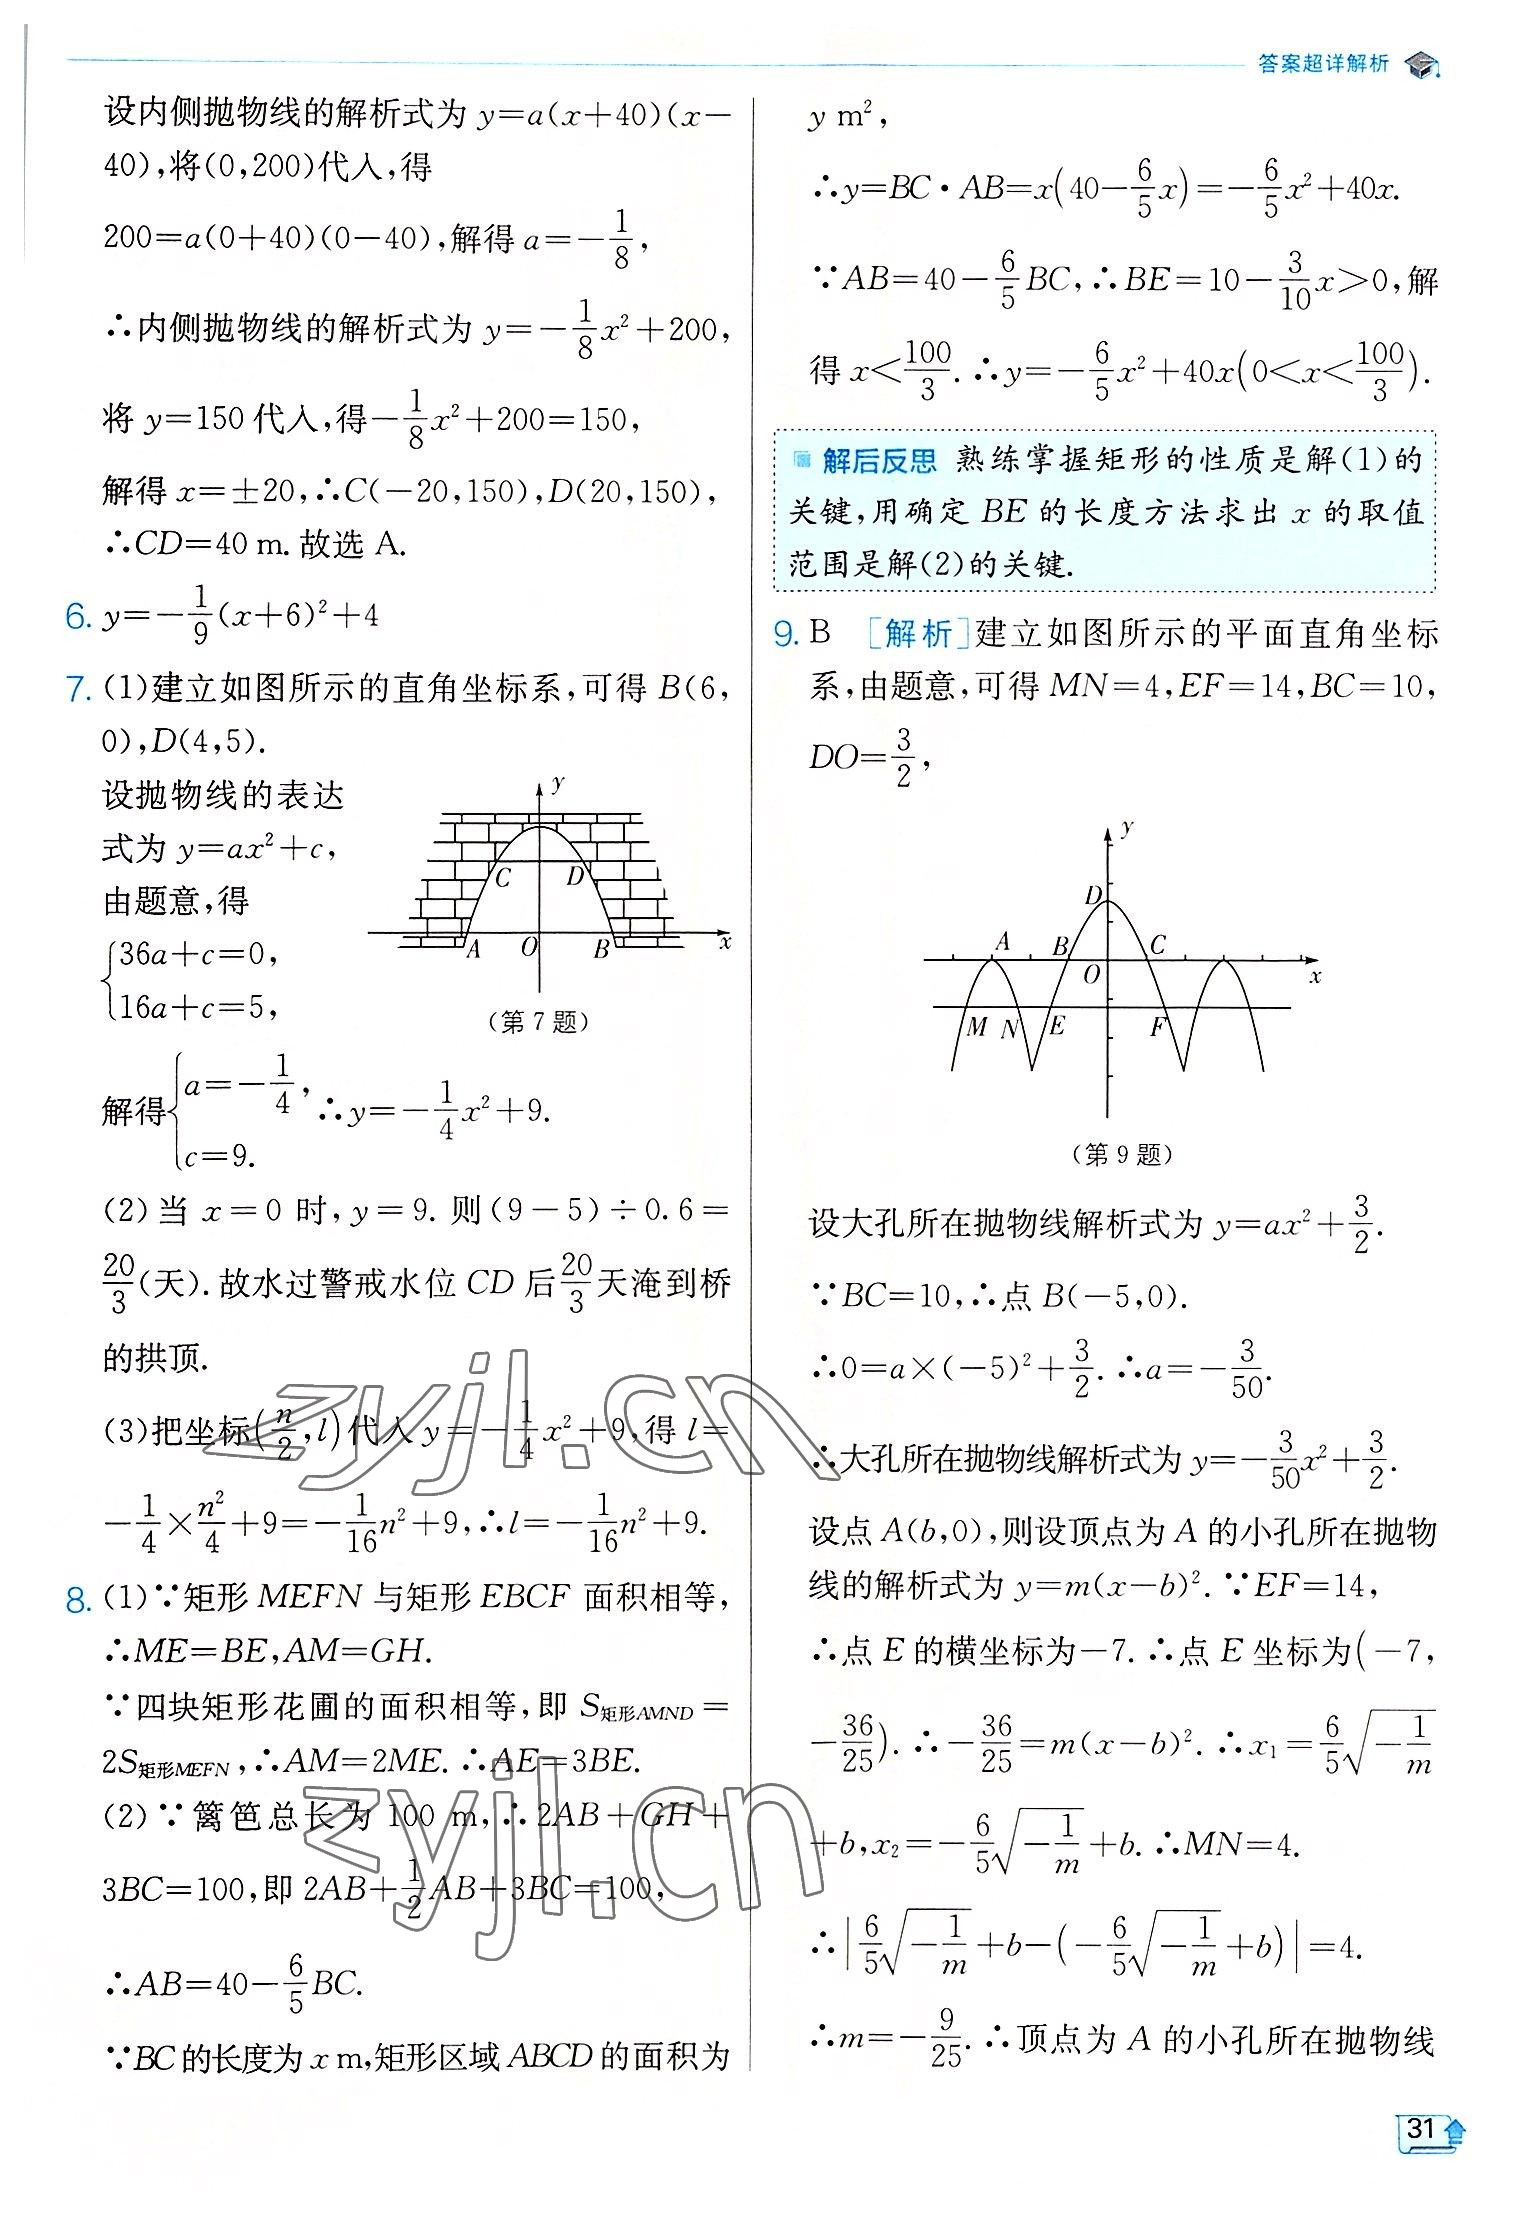 答案超详解析
设内侧抛物线的解析式为 y=a(x+40)(x-
40),将(0,200)代入,得
200=a(0+40)(0-40),解得 a=-1/8,
∴内侧抛物线的解析式为 y=-1/8x²+200,
将 y=150 代入,得-1/8x²+200=150,
解得 x=±20,∴C(-20,150),D(20,150),
∴CD=40 m.故选 A.
6. y=-1/9(x+6)²+4
7. (1)建立如图所示的直角坐标系,可得 B(6,
0),D(4,5).
设抛物线的表达
式为 y=ax²+c,
由题意,得
{36a+c=0,
16a+c=5,
y
C
D
A
O
B
x
(第 7 题)
解得{a=-1/4, ∴y=-1/4x²+9.
c=9.
(2)当 x=0 时,y=9. 则(9-5)÷0.6=
20/3(天).故水过警戒水位 CD 后20/3天淹到桥
的拱顶.
(3)把坐标(n/2,l)代入 y=-1/4x²+9,得 l=
-1/4×n²/4+9=-1/16n²+9,∴l=-1/16n²+9.
8. (1)∵矩形 MEFN 与矩形 EBCF 面积相等,
∴ME=BE,AM=GH.
∵四块矩形花圃的面积相等,即 S矩形AMND=
2S矩形MEFN,∴AM=2ME.∴AE=3BE.
(2)∵篱笆总长为 100 m,∴2AB+GH+
3BC=100,即 2AB+1/2AB+3BC=100,
∴AB=40-6/5BC.
∵BC的长度为 x m,矩形区域 ABCD 的面积为
y m²,
∴y=BC·AB=x(40-6/5x)=-6/5x²+40x.
∵AB=40-6/5BC,∴BE=10-3/10x>0,解
得 x<100/3.∴y=-6/5x²+40x(0<x<100/3).
解后反思 熟练掌握矩形的性质是解(1)的
关键,用确定 BE 的长度方法求出 x 的取值
范围是解(2)的关键.
9. B [解析]建立如图所示的平面直角坐标
系,由题意,可得 MN=4,EF=14,BC=10,
DO=3/2,
y
D
A
B
C
O
x
M
N
E
F
(第 9 题)
设大孔所在抛物线解析式为 y=ax²+3/2.
∵BC=10,∴点 B(-5,0).
∴0=a×(-5)²+3/2.∴a=-3/50.
∴大孔所在抛物线解析式为 y=-3/50x²+3/2.
设点 A(b,0),则设顶点为 A 的小孔所在抛物
线的解析式为 y=m(x-b)².∵EF=14,
∴点 E 的横坐标为-7.∴点 E 坐标为(-7,
-36/25).∴-36/25=m(x-b)².∴x₁=6/5√(-1/m)
+b,x₂=-6/5√(-1/m)+b.∴MN=4.
∴|6/5√(-1/m)+b-(-6/5√(-1/m)+b)|=4.
∴m=-9/25.∴顶点为 A 的小孔所在抛物线
zyjl.cn
zyjl.cn
31